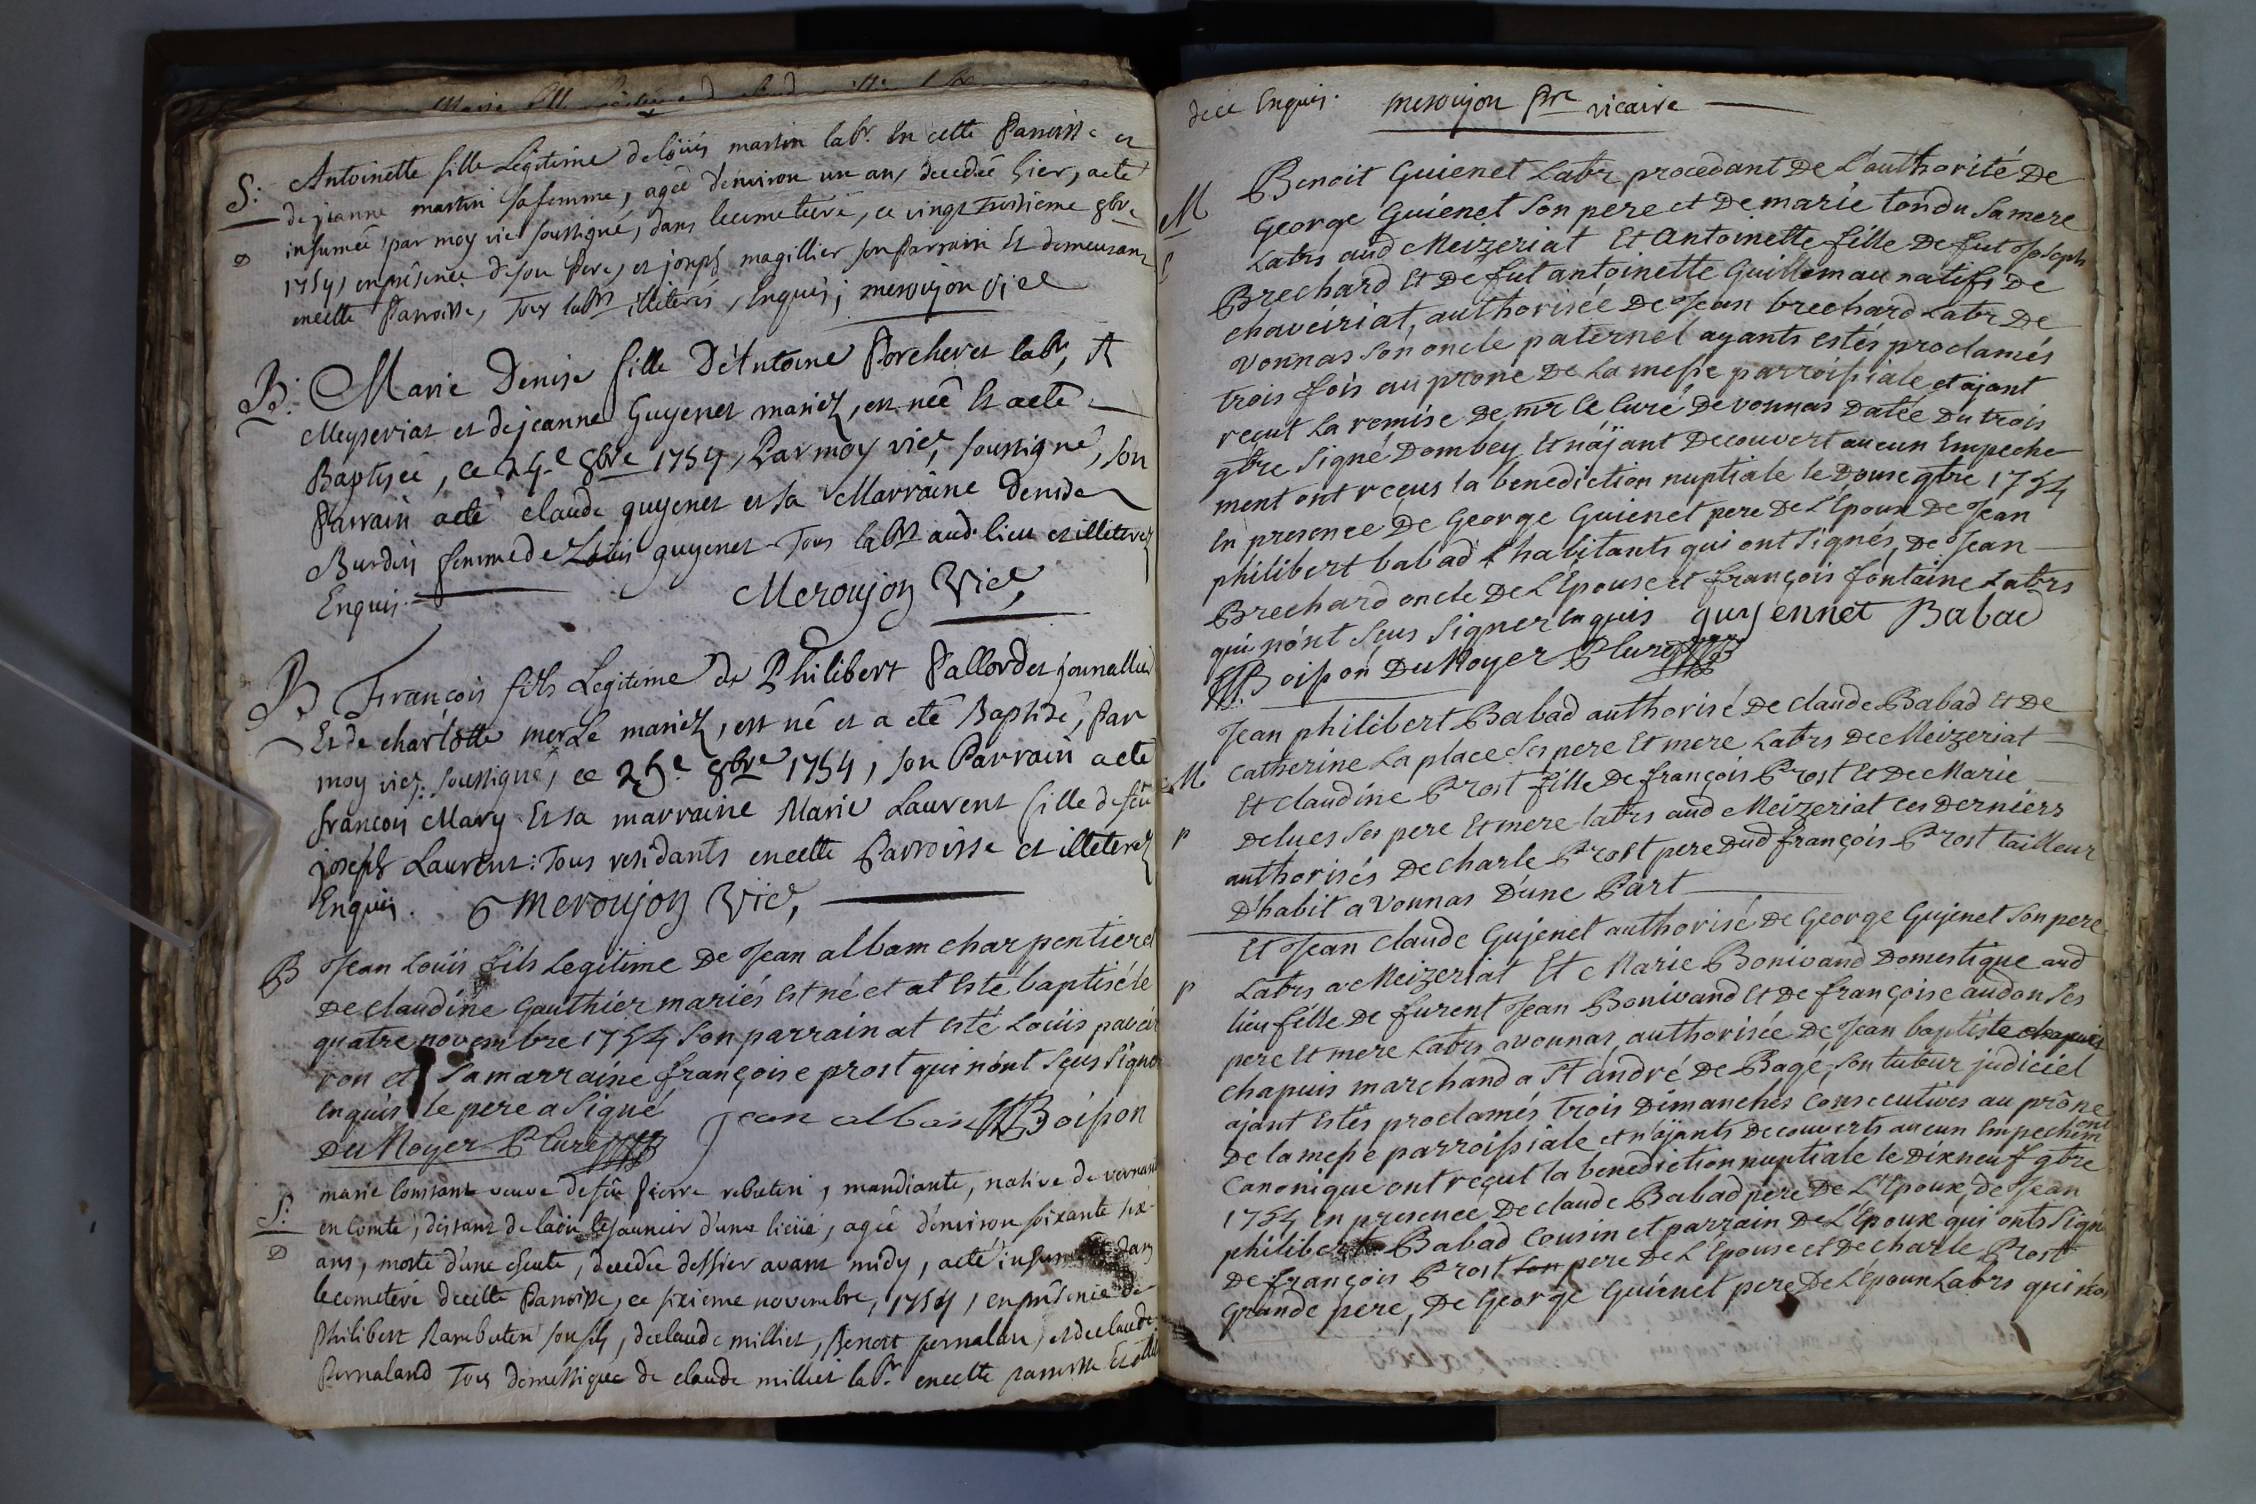 S: Antoinette fille Legitime de loüis martin labr. En cette Parroisse et
de jeanne martin sa femme, agée d'environ un an, decedée hier, a eté
D inhumée, par moy vic. soussigné, dans le cimetiere, ce vingt troisieme 8bre
1754, en présence de son Pere, et joseph magillier son Parrain Et demeurant
en cette Parroisse, Tous labrs illiterés, Enquis; meroujon vic.
B: Marie Denise fille D'Antoine Porcheret labr, A
Meyseriat et de jeanne Guyenet mariez, est née Et a eté
Baptisée, ce 24.e 8bre 1754, Par moy vic. soussigné, son
Parrain a eté claude guyenet et sa Marraine denise
Burdin femme de Loüis guyenet Tous labrs aud. lieu et illeterez
Enquis. Meroujon Vic.
B François fils Legitime de Philibert Pallordet journallier
Et de charlotte merle mariez, est né et a eté Baptisé, Par
moy vic. soussigné, ce 25.e 8bre 1754, son Parrain a eté
francois Mary Et sa marraine Marie Laurent fille de feu
joseph Laurent: Tous residants en cette Parroisse et illeterez
Enquis. meroujon Vic.
B Jean Loüis fils Legitime De Jean albam charpentier et
De claudine Gauthier mariés Est né et at Esté baptisé le
quatre novembre 1754 Son parrain at esté Loüis
ron et sa marraine françoise prost qui n'ont sçus signer
Enquis le pere a Signé
Du Noyer P Curé Jean alban Boisson
S: marie Constant veuve de feu pierre rebuteri, mandiante, native de vernant
D en Comté, distant de d'une lieüe, agée d'environ soixante six
ans, morte d'une cheute, decedée d'hier avant midy, a eté inhumée dans
le cimetére de cette Parroisse, ce sixieme novembre, 1754, en présence de
Philibert Rambuteri son fils, de claude milliet, Benoit pernalan, et de claude
Pernaland Tous domestique de claude milliet labr. en cette parroisse Et
de ce Enquis. meroujon Pre vicaire
M Benoit Guienet Labr procedant De L'authorité De
George Guienet Son pere et De marie tondu Sa mere
Labrs aud Meizeriat Et Antoinette fille De fut Joseph
Brechard Et De fut antoinette Guillemau natifs De
chaveiriat, authorisée De Jean brechard Labr De
vonnas Son oncle paternel ayants estés proclamés
trois fois au prone De La messe parroissiale et ajant
reçut La remise De mr Le Curé De vonnas Datée Du trois
9bre Signé Dombey Et n'aÿant Decouvert aucun Empeche
ment ont reçus la benediction nuptiale le Douse 9bre 1754
En presence De George Guienet pere De L'Epoux De Jean
philibert babad habitants qui ont Signés, De Jean
Brechard oncle De L'Epouse et françois fontaine Labrs
qui n'ont Sçus Signer Enquis guyennet Babad
Boisson Du Noyer P Curé
Jean philibert Babad authorisé De claude Babad Et De
M Catherine La place Ses pere Et mere Labrs De Meizeriat
Et claudine Prost fille De françois Prost Et De Marie
P Delues Ses pere Et mere Labrs aud Meizeriat Ces Derniers
authorisés De Charle Prost pere Dud françois Prost tailleur
D'habit a Vonnas D'une Part
Et Jean Claude Gujenet authorisé De George Gujenet Son pere
P Labrs a Meizeriat Et Marie Bonivand Domestique aud
lieu fille De furent Jean Bonivand Et De françoise audon Ses
pere Et mere Labrs a vonnas, authorisée De Jean baptiste chapuis
chapuis marchand a St andré De Bagé, Son tuteur judiciel
ajant Estés proclamés Trois Dimanches Consecutives au prône
De la messe parroissiale et n'ajants Decouverts aucun Empechem
ent
Canonique ont reçut la benediction nuptiale le Dixneuf 9bre
1754 En presence De claude Babad pere De L'Epoux, De Jean
philibert Babad Cousin et parrain De L'Epoux qui onts Signé
De françois Prost Son pere De L'Epouse et De charle Prost
Grande pere, De George Guienet pere De L'Epoux Labrs qui